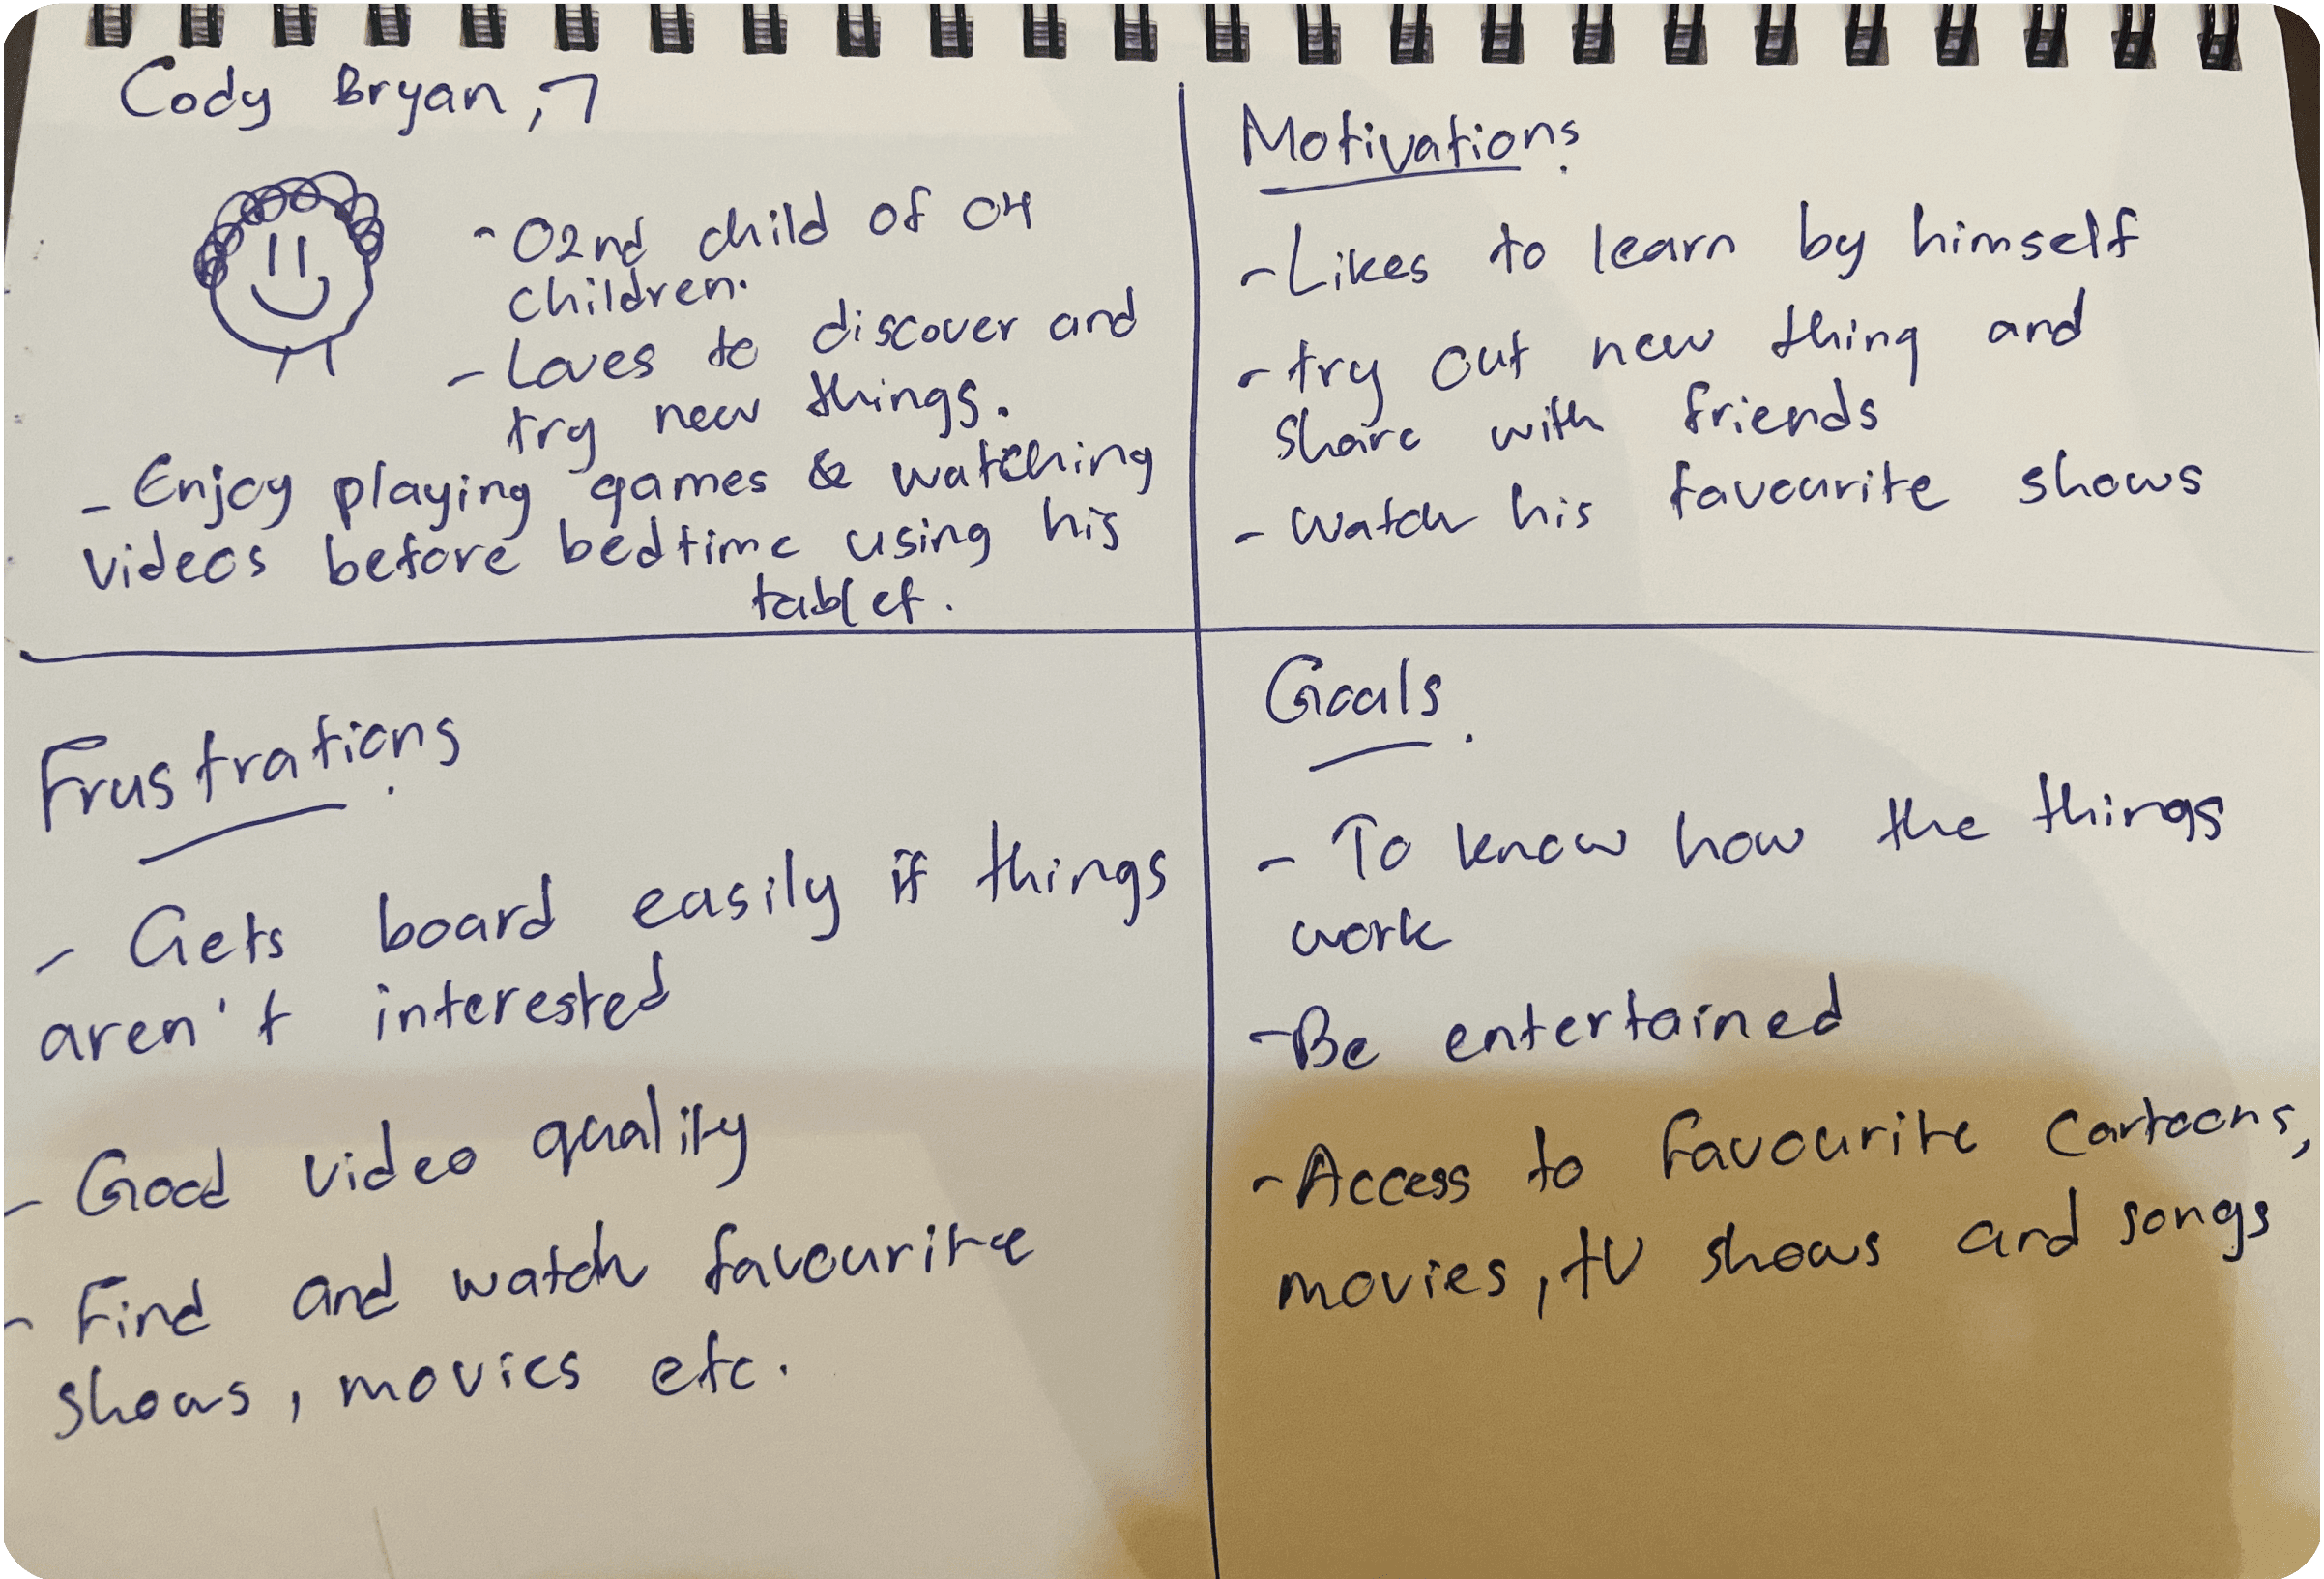 Cody Bryan, 7
- 02nd child of 04
children.
- Loves to discover and
try new things.
- Enjoy playing games & watching
videos before bedtime using his
tablet.
Motivations.
- Likes to learn by himself
- try out new thing and
share with friends
- Watch his favourite shows
Frustrations.
- Gets board easily if things
aren't interested
- Good video quality
- Find and watch favourite
shows, movies etc.
Goals.
- To know how the things
work
- Be entertained
- Access to favourite cartoons,
movies, tV shows and songs